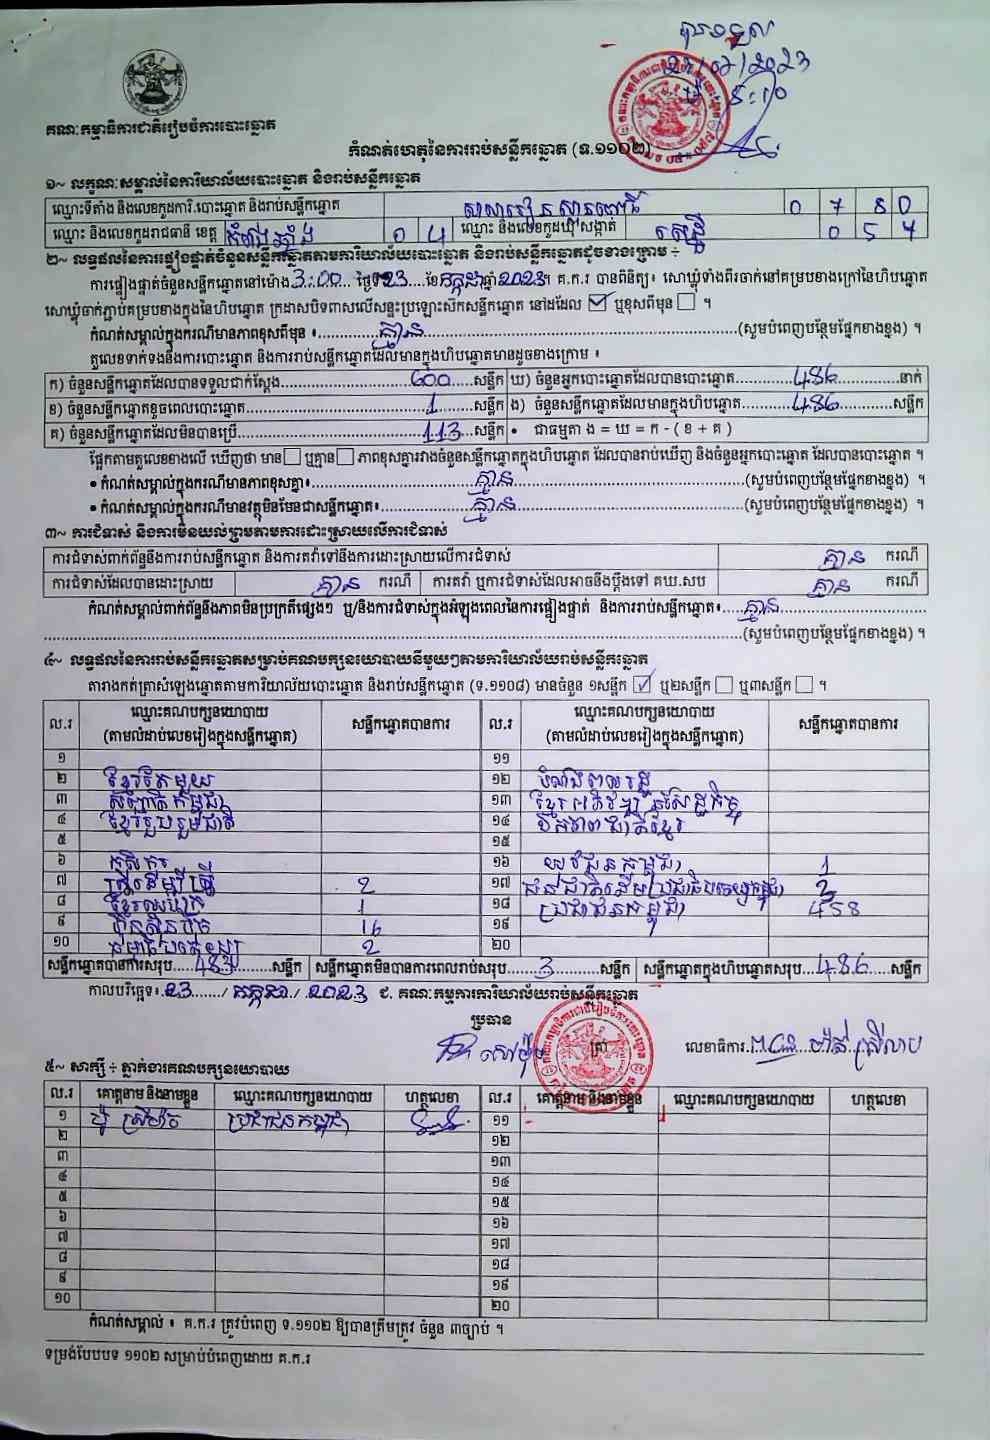 គណៈកម្មាធិការជាតិរៀបចំការបោះឆ្នោត
បានទទួល
23/07/2023
ម៉ 5:10
កំណត់ហេតុនៃការរាប់សន្លឹកឆ្នោត (ទ.១១០២)
១~ លក្ខណៈសម្គាល់នៃការិយាល័យបោះឆ្នោត និងរាប់សន្លឹកឆ្នោត
ឈ្មោះទីតាំង និងលេខកូដការិ.បោះឆ្នោត និងរាប់សន្លឹកឆ្នោត 0 7 8 0
ឈ្មោះ និងលេខកូដរាជធានី ខេត្ត កំពង់ឆ្នាំង 0 4 ឈ្មោះ និងលេខកូដឃុំ សង្កាត់ 0 5 4
២~ លទ្ធផលនៃការផ្ទៀងផ្ទាត់ចំនួនសន្លឹកឆ្នោតតាមការិយាល័យបោះឆ្នោត និងរាប់សន្លឹកឆ្នោតដូចខាងក្រោម ÷
ការផ្ទៀងផ្ទាត់ចំនួនសន្លឹកឆ្នោតនៅម៉ោង 3:00 ថ្ងៃទី 23 ខែ កក្កដា ឆ្នាំ 2023 ។ គ.ក.រ បានពិនិត្យ៖ សោឃ្លុំទាំងពីរចាក់នៅគម្របខាងក្រៅនៃហិបឆ្នោត
សោឃ្លុំចាក់ភ្ជាប់គម្របខាងក្នុងនៃហិបឆ្នោត ក្រដាសបិទពាសលើសន្ទះប្រឡោះស៊កសន្លឹកឆ្នោត នៅដដែល ☑ ឬខុសពីមុន ☐ ។
កំណត់សម្គាល់ក្នុងករណីមានភាពខុសពីមុន ៖ គ្មាន (សូមបំពេញបន្ថែមផ្នែកខាងខ្នង) ។
តួលេខទាក់ទងនឹងការបោះឆ្នោត និងការរាប់សន្លឹកឆ្នោតដែលមានក្នុងហិបឆ្នោតមានដូចខាងក្រោម ៖
ក) ចំនួនសន្លឹកឆ្នោតដែលបានទទួលជាក់ស្តែង 600 សន្លឹក ឃ) ចំនួនអ្នកបោះឆ្នោតដែលបានបោះឆ្នោត 486 នាក់
ខ) ចំនួនសន្លឹកឆ្នោតខូចពេលបោះឆ្នោត 1 សន្លឹក ង) ចំនួនសន្លឹកឆ្នោតដែលមានក្នុងហិបឆ្នោត 486 សន្លឹក
គ) ចំនួនសន្លឹកឆ្នោតដែលមិនបានប្រើ 113 សន្លឹក • ជាធម្មតា ង = ឃ = ក - ( ខ + គ )
ផ្អែកតាមតួលេខខាងលើ ឃើញថា មាន ☐ ឬគ្មាន ☐ ភាពខុសគ្នារវាងចំនួនសន្លឹកឆ្នោតក្នុងហិបឆ្នោត ដែលបានរាប់ឃើញ និងចំនួនអ្នកបោះឆ្នោត ដែលបានបោះឆ្នោត ។
• កំណត់សម្គាល់ក្នុងករណីមានភាពខុសគ្នា៖ គ្មាន (សូមបំពេញបន្ថែមផ្នែកខាងខ្នង) ។
• កំណត់សម្គាល់ក្នុងករណីមានវត្ថុមិនមែនជាសន្លឹកឆ្នោត៖ គ្មាន (សូមបំពេញបន្ថែមផ្នែកខាងខ្នង) ។
៣~ ការជំទាស់ និងការមិនយល់ព្រមតាមការដោះស្រាយលើការជំទាស់
ការជំទាស់ពាក់ព័ន្ធនឹងការរាប់សន្លឹកឆ្នោត និងការតវ៉ាទៅនឹងការដោះស្រាយលើការជំទាស់ គ្មាន ករណី
ការជំទាស់ដែលបានដោះស្រាយ គ្មាន ករណី ការតវ៉ា ឬការជំទាស់ដែលអាចនឹងប្តឹងទៅ គឃ.សប គ្មាន ករណី
កំណត់សម្គាល់ពាក់ព័ន្ធនឹងភាពមិនប្រក្រតីផ្សេងៗ ឬ/និងការជំទាស់ក្នុងអំឡុងពេលនៃការផ្ទៀងផ្ទាត់ និងការរាប់សន្លឹកឆ្នោត៖ គ្មាន
(សូមបំពេញបន្ថែមផ្នែកខាងខ្នង) ។
៤~ លទ្ធផលនៃការរាប់សន្លឹកឆ្នោតសម្រាប់គណបក្សនយោបាយនីមួយៗតាមការិយាល័យរាប់សន្លឹកឆ្នោត
តារាងកត់ត្រាសំឡេងឆ្នោតតាមការិយាល័យបោះឆ្នោត និងរាប់សន្លឹកឆ្នោត (ទ.១១០៨) មានចំនួន ១សន្លឹក ☑ ឬ២សន្លឹក ☐ ឬ៣សន្លឹក ☐ ។
ល.រ ឈ្មោះគណបក្សនយោបាយ (តាមលំដាប់លេខរៀងក្នុងសន្លឹកឆ្នោត) សន្លឹកឆ្នោតបានការ ល.រ ឈ្មោះគណបក្សនយោបាយ (តាមលំដាប់លេខរៀងក្នុងសន្លឹកឆ្នោត) សន្លឹកឆ្នោតបានការ
១ ១១
២ ខ្មែរតែមួយ ១២
៣ សញ្ជាតិកម្ពុជា ១៣ ខ្មែរអភិវឌ្ឍន៍សេដ្ឋកិច្ច
៤ ខ្មែររួបរួមជាតិ ១៤ ឯកភាពជាតិខ្មែរ
៥ ១៥
៦ កសិករ ១៦ យុវជនកម្ពុជា 1
៧ ស្ត្រីដើម្បីស្ត្រី 2 ១៧ ជនជាតិដើមប្រជាធិបតេយ្យកម្ពុជា 2
៨ 1 ១៨ ប្រជាជនកម្ពុជា 458
៩ ហ៊្វុនស៊ិនប៉ិច 16 ១៩
១០ ធម្មាធិបតេយ្យ 2 ២០
សន្លឹកឆ្នោតបានការសរុប 483 សន្លឹក សន្លឹកឆ្នោតមិនបានការពេលរាប់សរុប 3 សន្លឹក សន្លឹកឆ្នោតក្នុងហិបឆ្នោតសរុប 486 សន្លឹក
កាលបរិច្ឆេទ៖ 23 / កក្កដា / 2023 ជ. គណៈកម្មការការិយាល័យរាប់សន្លឹកឆ្នោត
ប្រធាន
ត្រា
លេខាធិការ
៥~ សាក្សី ÷ ភ្នាក់ងារគណបក្សនយោបាយ
ល.រ គោត្តនាម និងនាមខ្លួន ឈ្មោះគណបក្សនយោបាយ ហត្ថលេខា ល.រ គោត្តនាម និងនាមខ្លួន ឈ្មោះគណបក្សនយោបាយ ហត្ថលេខា
១ ប្រជាជនកម្ពុជា ១១
២ ១២
៣ ១៣
៤ ១៤
៥ ១៥
៦ ១៦
៧ ១៧
៨ ១៨
៩ ១៩
១០ ២០
កំណត់សម្គាល់ ៖ គ.ក.រ ត្រូវបំពេញ ទ.១១០២ ឱ្យបានត្រឹមត្រូវ ចំនួន ៣ច្បាប់ ។
ទម្រង់បែបបទ ១១០២ សម្រាប់បំពេញដោយ គ.ក.រ